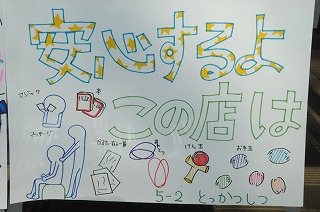 安心するよ
この店は
マジック
本
マッサージ
けん玉
お手玉
5-2 とっかつしつ